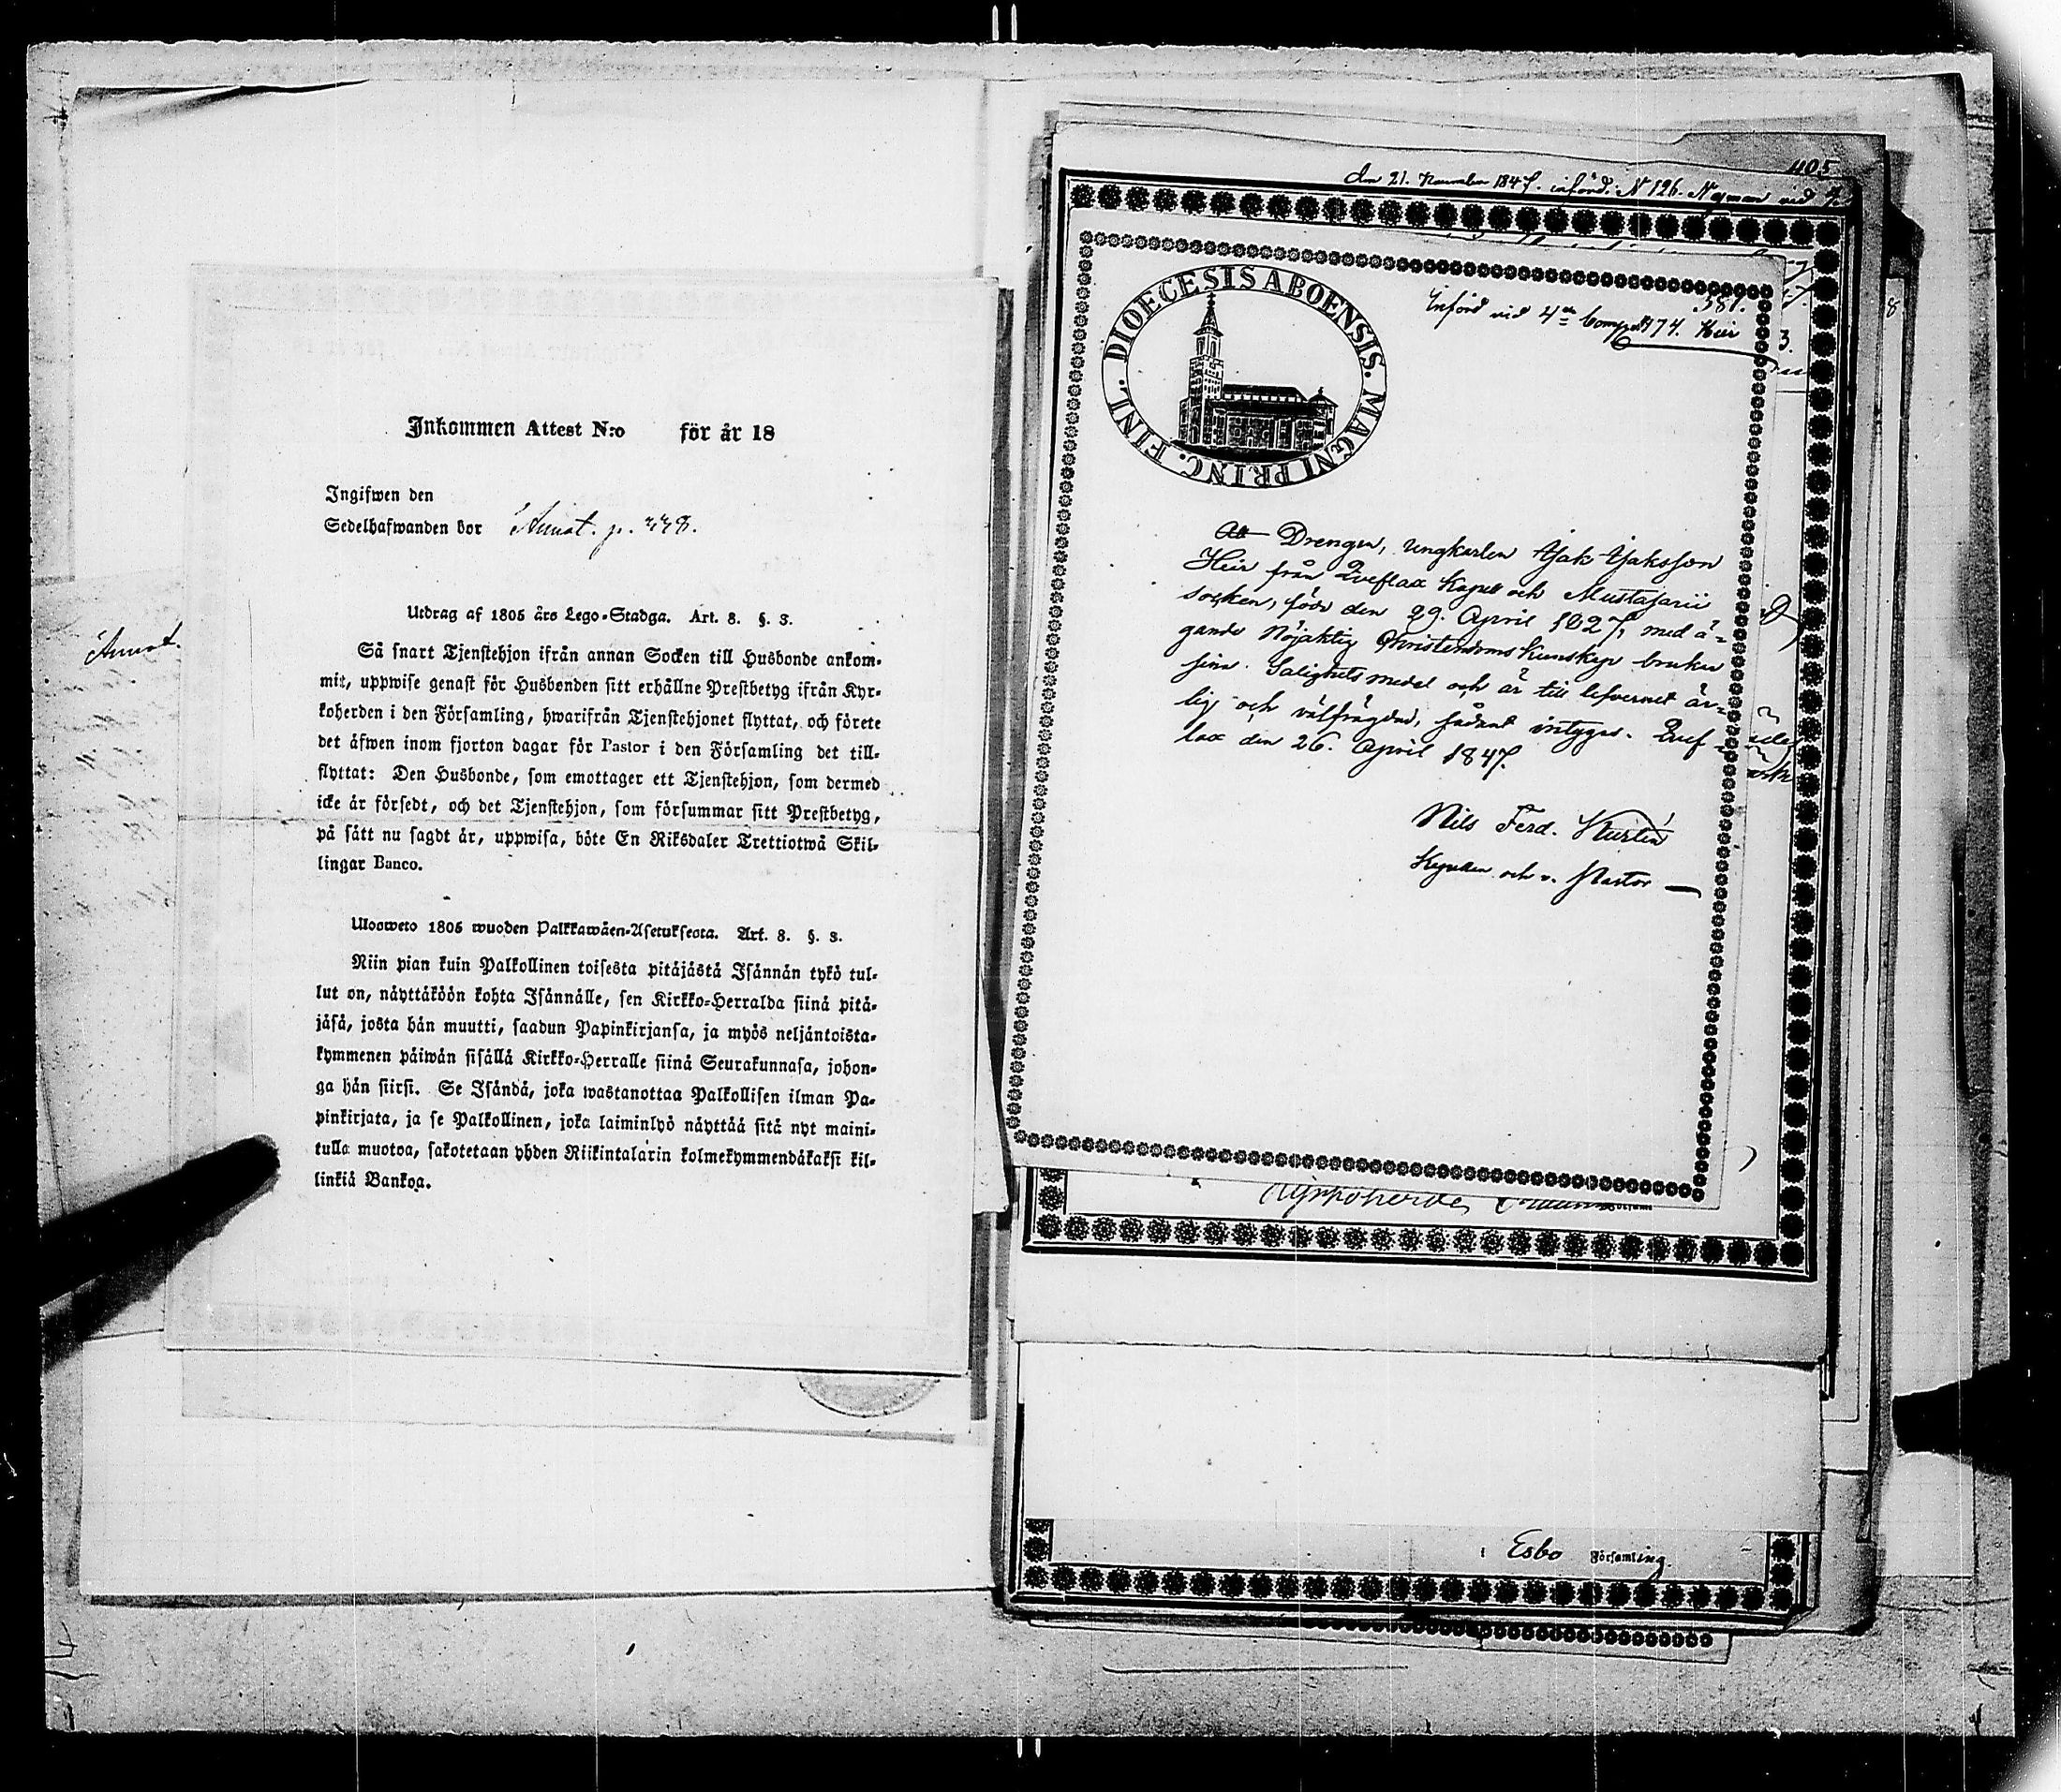 Inkommen Attest N:o för år 18
Ingifwen den
Sedelhafwanden bor Annot. p. 448.
Utdrag af 1805 års Lego-Stadga. Art. 8. §. 3.
Så snart Tjenstehjon ifrån annan Socken till Husbonde ankom-
mit, uppwise genast för Husbonden sitt erhållne Prestbetyg ifrån Kyr-
koherden i den Församling, hwarifrån Tjenstehjonet flyttat, och förete
det äfwen inom fjorton dagar för Pastor i den Församling det till-
flyttat: Den Husbonde, som emottager ett Tjenstehjon, som dermed
icke är försedt, och det Tjenstehjon, som försummar sitt Prestbetyg,
på sätt nu sagdt är, uppwisa, böte En Riksdaler Trettiotwå Skil-
lingar Banco.
Ulosweto 1805 wuoden Palkkawäen-Asetuksesta. Art. 8. §. 3.
Niin pian kuin Palkollinen toisesta pitäjästä Isännän tykö tul-
lut on, näyttäköön kohta Isännälle, sen Kirkko-Herralda siinä pitä-
jäsä, josta hän muutti, saadun Papinkirjansa, ja myös neljäntoista-
kymmenen päiwän sisällä Kirkko-Herralle siinä Seurakunnasa, johon-
ga hän siirsi. Se Isändä, joka wastanottaa Palkollisen ilman Pa-
pinkirjata, ja se Palkollinen, joka laiminlyö näyttää sitä nyt maini-
tulla muotoa, sakotetaan yhden Riikintalarin kolmekymmendäkaksi kil-
linkiä Bankoa.
Annot.
405
den 21. November 1847. införd. N 126. Nyman vid
381.
Införd vid 4de Comp. 174. Heir
DIOECESIS ABOENSIS. MAGNI PRINC. FINL.
Att Drengen, ungkarlen Isak Isaksson
Heir från Qveflax Kapell och Mustasari
socken, född den 29. April 1827, med ä-
gande Nöjaktig Christendoms Kunskap bruker
sina Salighets medel och är till lefvernet är-
lig och välfrägdad, sådant intygas. Qvef-
lax den 26. April 1847.
Nils Ferd.
och v. Pastor
Kyrkoherde
Esbo Församling.